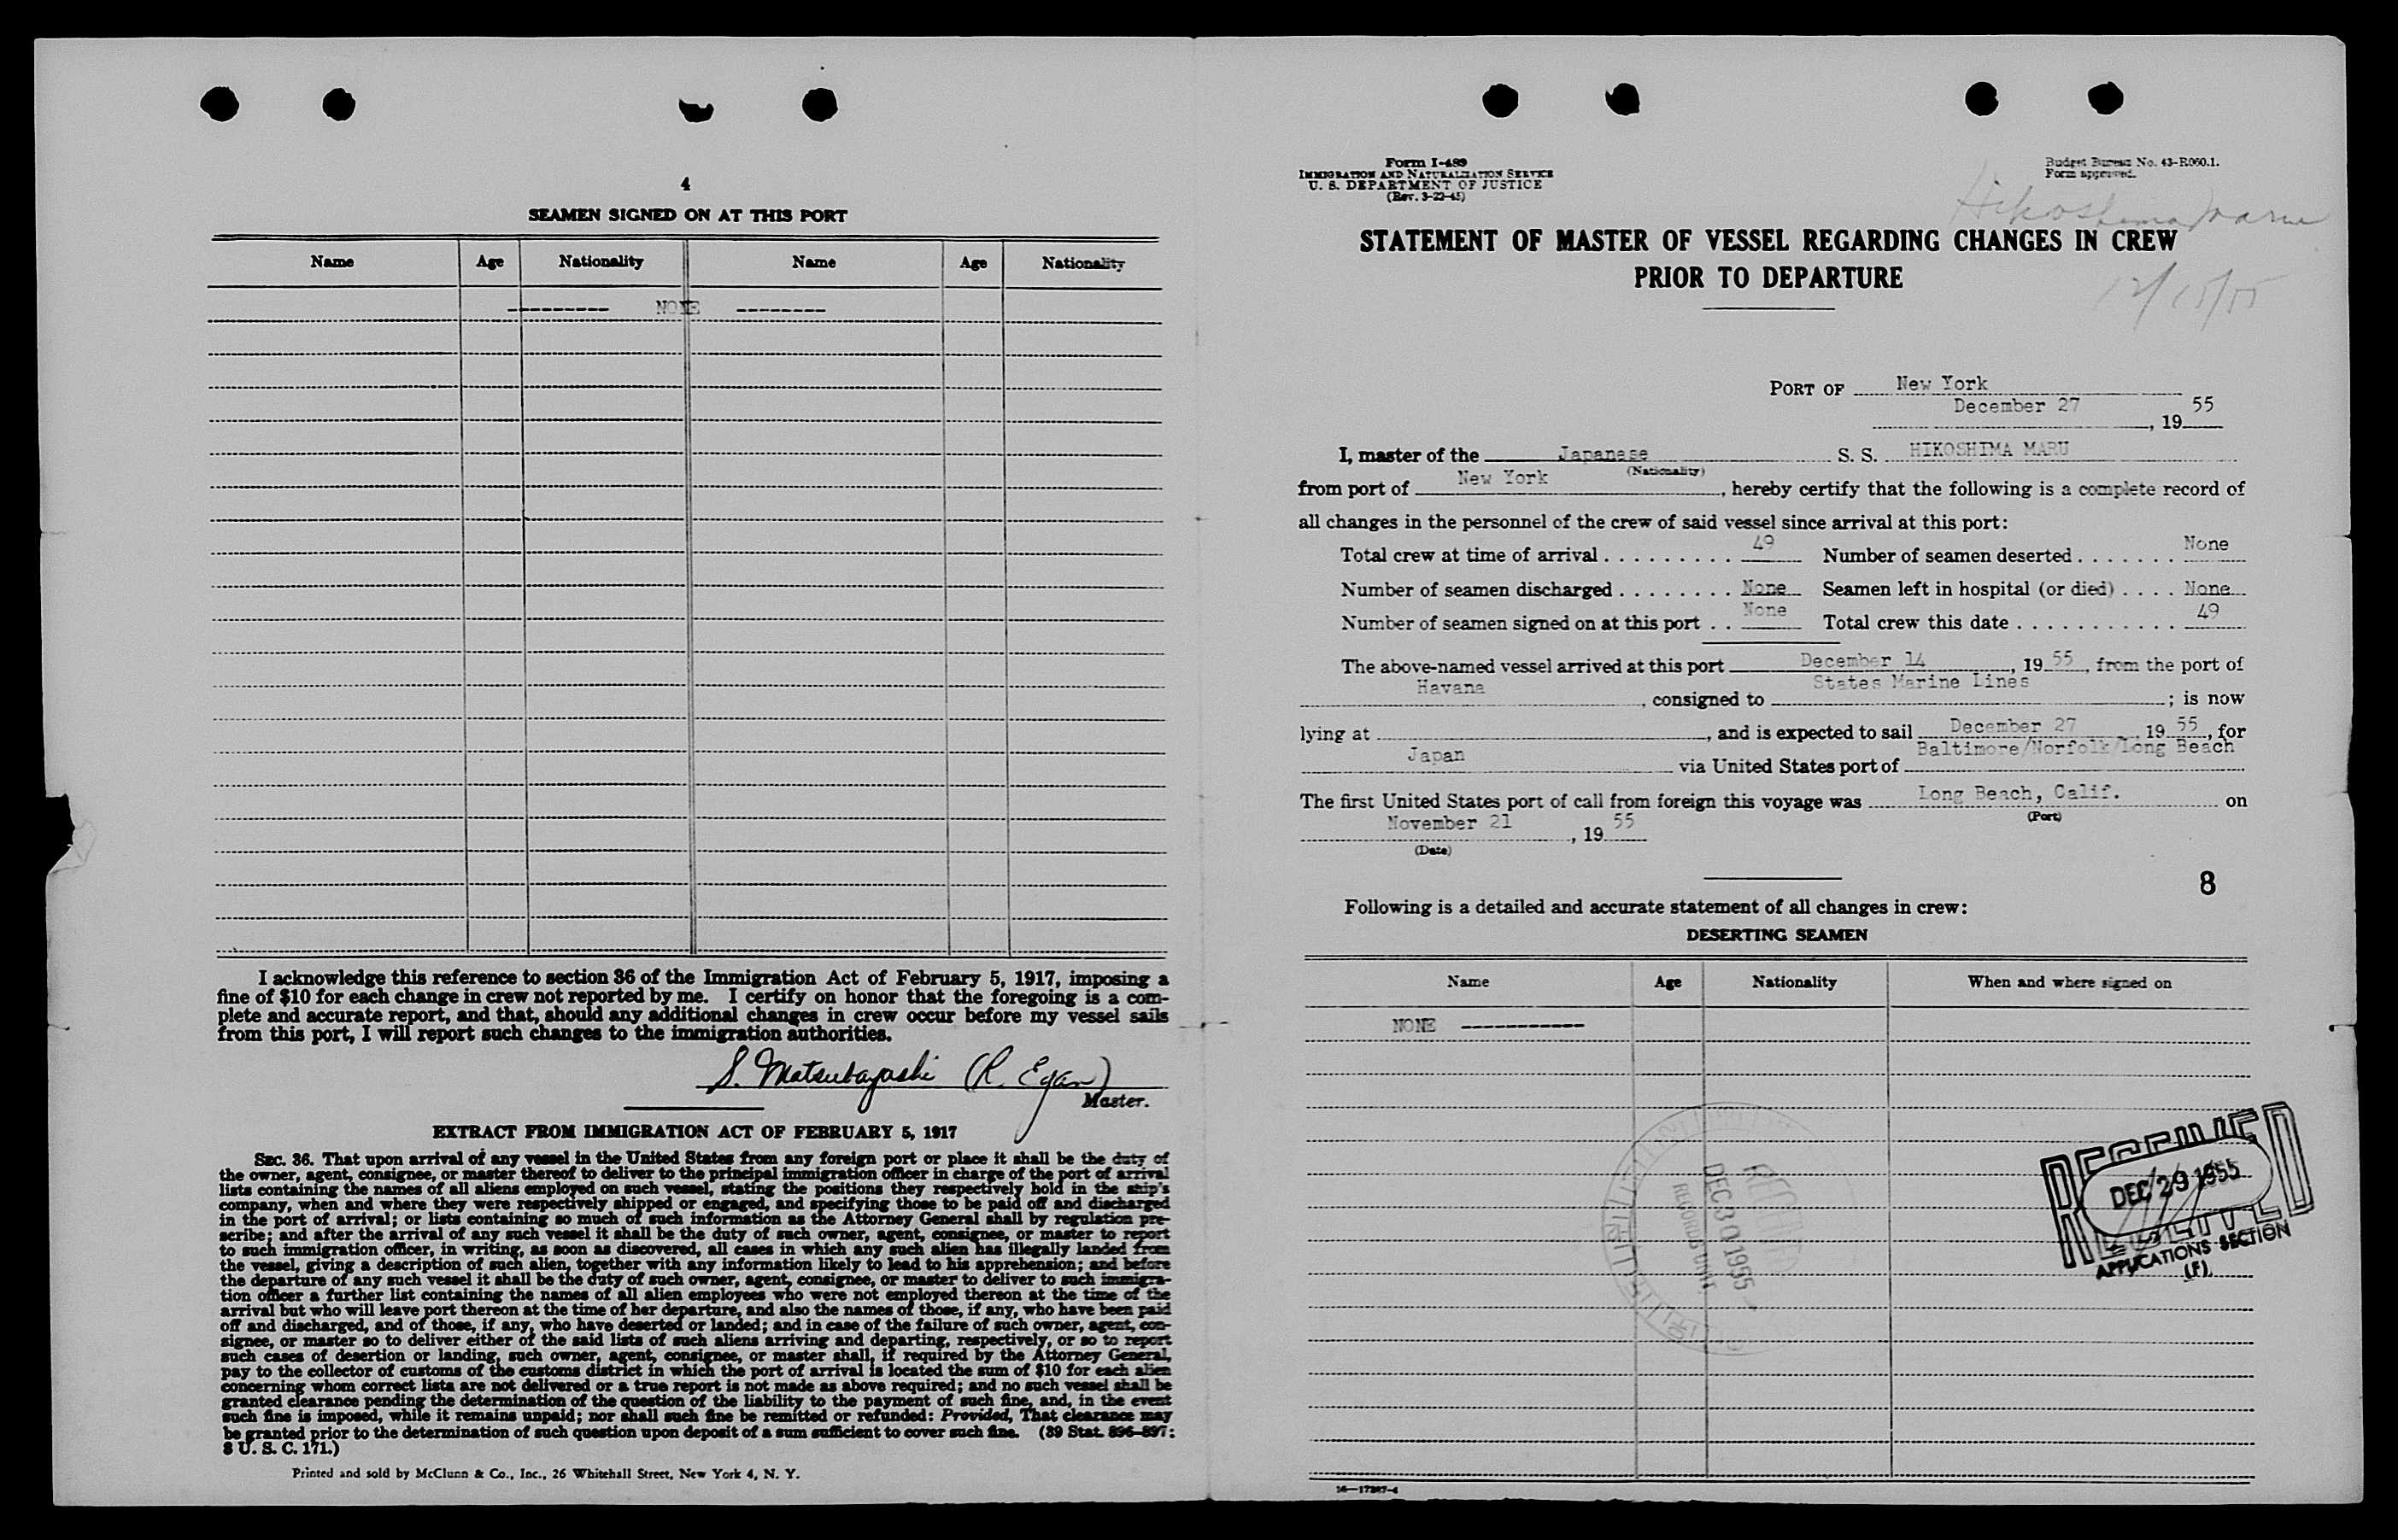 4
SEAMEN SIGNED ON AT THIS PORT
Name Age Nationality Name Age Nationality
---------- NONE ---------
I acknowledge this reference to section 36 of the Immigration Act of February 5, 1917, imposing a
fine of $10 for each change in crew not reported by me. I certify on honor that the foregoing is a com-
plete and accurate report, and that, should any additional changes in crew occur before my vessel sails
from this port, I will report such changes to the immigration authorities.
S. Matsubayashi (R. Egan)
Master.
EXTRACT FROM IMMIGRATION ACT OF FEBRUARY 5, 1917
SEC. 36. That upon arrival of any vessel in the United States from any foreign port or place it shall be the duty of
the owner, agent, consignee, or master thereof to deliver to the principal immigration officer in charge of the port of arrival
lists containing the names of all aliens employed on such vessel, stating the positions they respectively hold in the ship's
company, when and where they were respectively shipped or engaged, and specifying those to be paid off and discharged
in the port of arrival; or lists containing so much of such information as the Attorney General shall by regulation pre-
scribe; and after the arrival of any such vessel it shall be the duty of such owner, agent, consignee, or master to report
to such immigration officer, in writing, as soon as discovered, all cases in which any such alien has illegally landed from
the vessel, giving a description of such alien, together with any information likely to lead to his apprehension; and before
the departure of any such vessel it shall be the duty of such owner, agent, consignee, or master to deliver to such immigra-
tion officer a further list containing the names of all alien employees who were not employed thereon at the time of the
arrival but who will leave port thereon at the time of her departure, and also the names of those, if any, who have been paid
off and discharged, and of those, if any, who have deserted or landed; and in case of the failure of such owner, agent, con-
signee, or master so to deliver either of the said lists of such aliens arriving and departing, respectively, or so to report
such cases of desertion or landing, such owner, agent, consignee, or master shall, if required by the Attorney General,
pay to the collector of customs of the customs district in which the port of arrival is located the sum of $10 for each alien
concerning whom correct lists are not delivered or a true report is not made as above required; and no such vessel shall be
granted clearance pending the determination of the question of the liability to the payment of such fine, and, in the event
such fine is imposed, while it remains unpaid; nor shall such fine be remitted or refunded: Provided, That clearance may
be granted prior to the determination of such question upon deposit of a sum sufficient to cover such fine. (39 Stat. 896-897;
8 U. S. C. 171.)
Printed and sold by McClunn & Co., Inc., 26 Whitehall Street, New York 4, N. Y.
Form I-489
IMMIGRATION AND NATURALIZATION SERVICE
U. S. DEPARTMENT OF JUSTICE
(Rev. 3-22-45)
Budget Bureau No. 43-R060.1.
Form approved.
Hikoshima Maru
STATEMENT OF MASTER OF VESSEL REGARDING CHANGES IN CREW
PRIOR TO DEPARTURE
12/15/55
PORT OF New York
December 27, 1955
I, master of the Japanese S. S. HIKOSHIMA MARU
(Nationality)
from port of New York, hereby certify that the following is a complete record of
all changes in the personnel of the crew of said vessel since arrival at this port:
Total crew at time of arrival . . . . . . . . . . 49 Number of seamen deserted . . . . . . . None
Number of seamen discharged . . . . . . . . None Seamen left in hospital (or died) . . . . None
Number of seamen signed on at this port . . None Total crew this date . . . . . . . . . . . . 49
The above-named vessel arrived at this port December 14, 1955, from the port of
Havana, consigned to States Marine Lines; is now
lying at , and is expected to sail December 27, 1955, for
Japan via United States port of Baltimore/Norfolk/Long Beach
The first United States port of call from foreign this voyage was Long Beach, Calif. on
(Port)
November 21, 1955
(Date)
8
Following is a detailed and accurate statement of all changes in crew:
DESERTING SEAMEN
Name Age Nationality When and where signed on
NONE ------------
RECEIVED
DEC 29 1955
APPLICATIONS SECTION
(F)
DEC 30 1955
RECORDS UNIT
16—17287-4